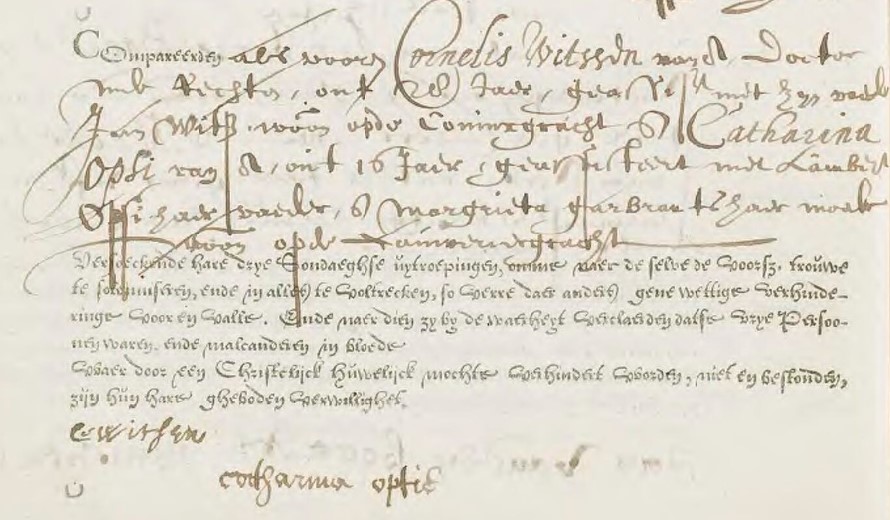 Compareerden als vooren Cornelis Witssen van A, Doctor
inde Rechten, out Jaer, geassist met zyn vader
Jan Witss woon opde Coninxgracht & Catharina
Opsi van A, out 16 Jaer, geassisteert met Lambert
Opsi haer vader, & Margrieta Garbrants haer moeder
woon opde Lauweriergracht
Versoeckende hare drye Sondaeghse uytroepingen, omme naer de selve de voorsz. trouwe
te solemniseren, ende in alles te voltrecken, so verre daer anders gene wettige verhinde-
ringe voor en valle. Ende naer dien zy by de waerheyt verclaerden datse vrye Persoo-
nen waren. ende malcanderen in bloede
Waer door een Christelijck Huwelijck mochte verhindert worden, niet en bestonden,
zijn hun hare gheboden verwillighet.
C Witsen
catharina opsie